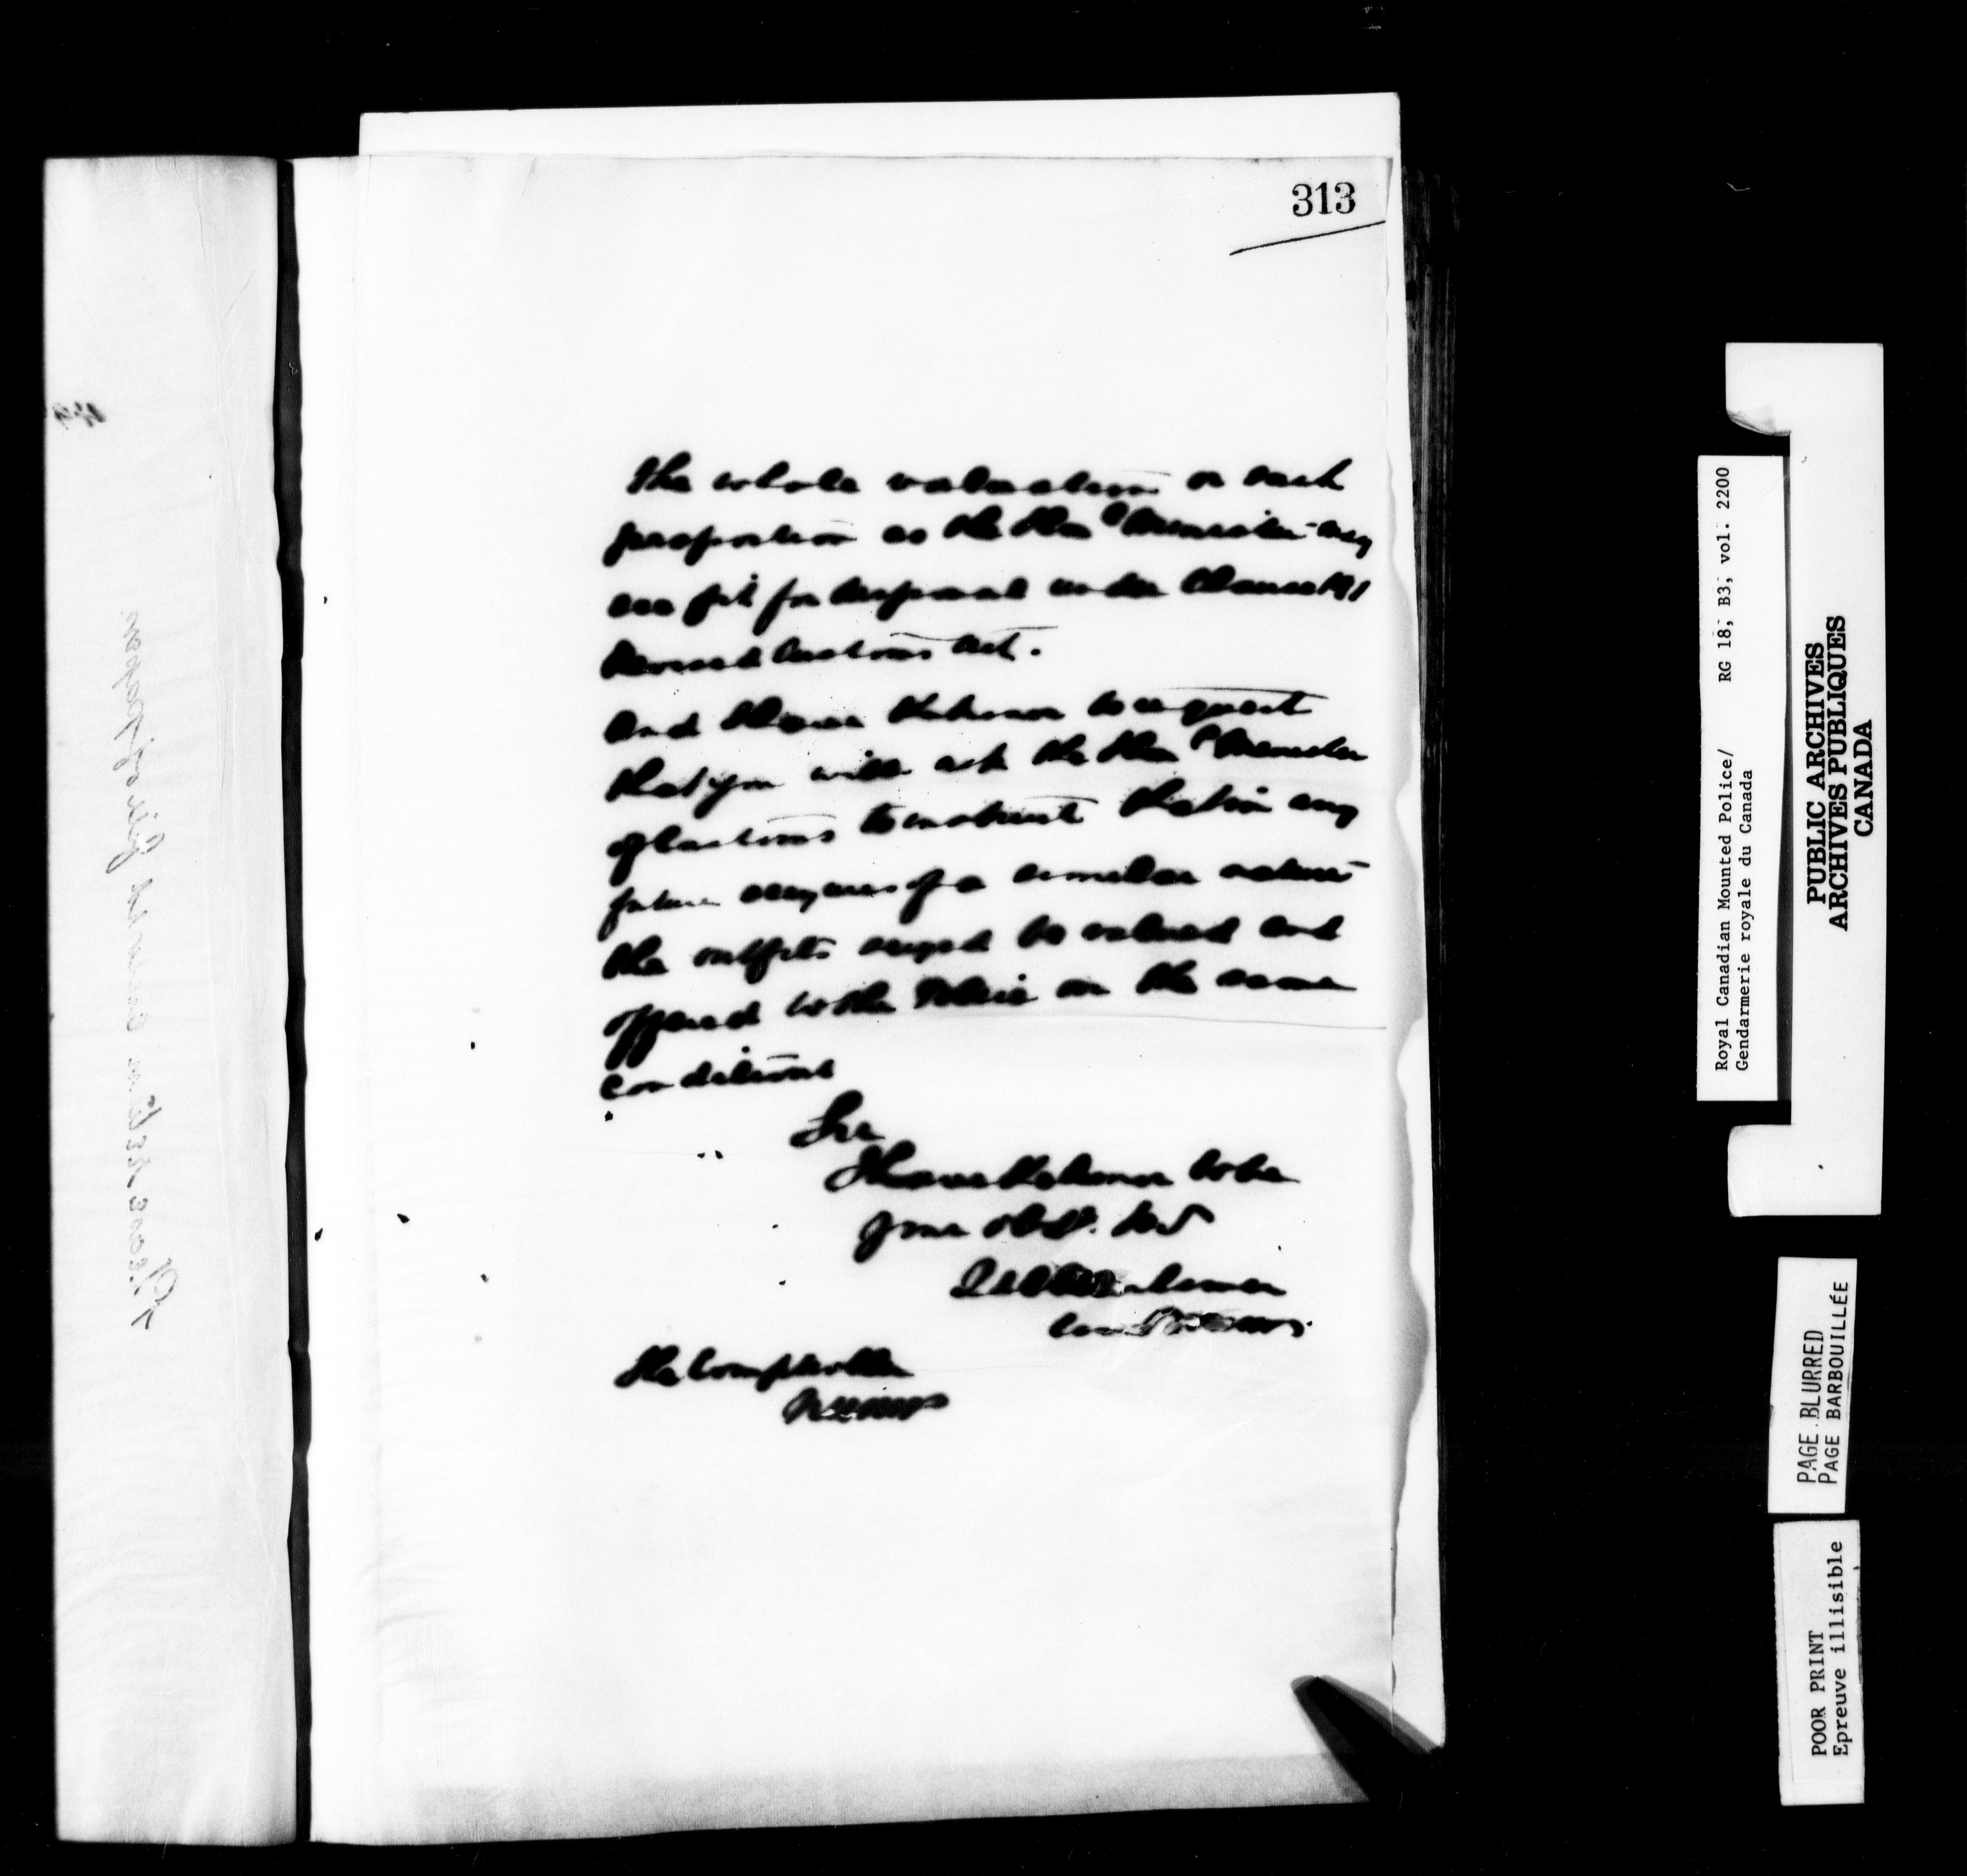 313
the whole valuation or such
proportion as the Hon Minister may
see fit for disposal under Clause 191
Revised Customs Act.
And I have the honor to request
that you will ask the Hon Minister
of Customs to instruct that in any
future seizures of a similar nature
the outfits seized be valued and
offered to the Police on the same
conditions
Sir
I have the honor to be
Your obdt. Svt
The Comptroller
NWMP
Royal Canadian Mounted Police/ RG 18, B3, vol. 2200
Gendarmerie royale du Canada
PUBLIC ARCHIVES
ARCHIVES PUBLIQUES
CANADA
PAGE BLURRED
PAGE BARBOUILLÉE
POOR PRINT
Epreuve illisible